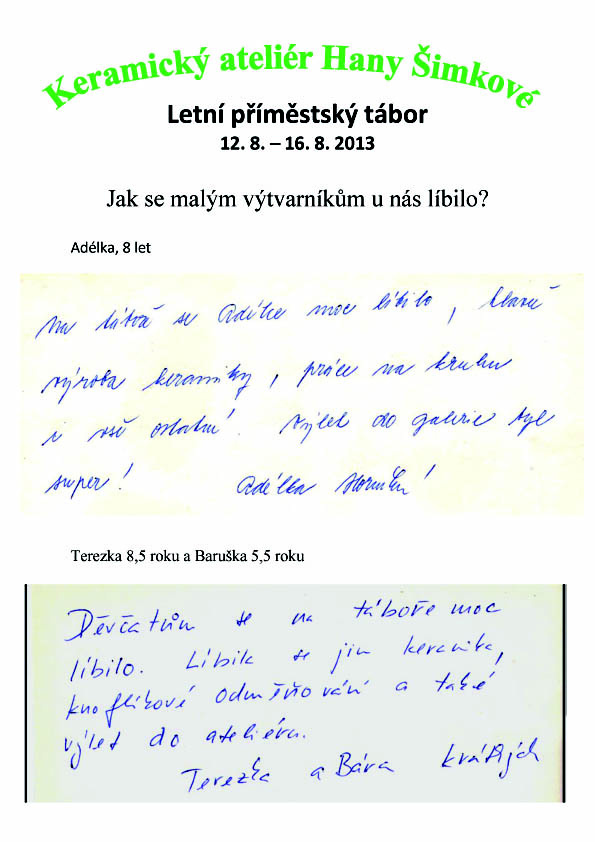 Keramický ateliér Hany Šimkové
Letní příměstský tábor
12. 8. – 16. 8. 2013
Jak se malým výtvarníkům u nás líbilo?
Adélka, 8 let
Na táboř se Adélce moc líbilo, hlavně
výroba keramiky, práce na kruhu
i vše ostatní. Výlet do galerie byl
super! Adélka
Terezka 8,5 roku a Baruška 5,5 roku
Děvčatům se na táboře moc
líbilo. Líbila se jim keramika,
knoflíkové odměňování a také
výlet do ateliéru.
Terezka a Bára